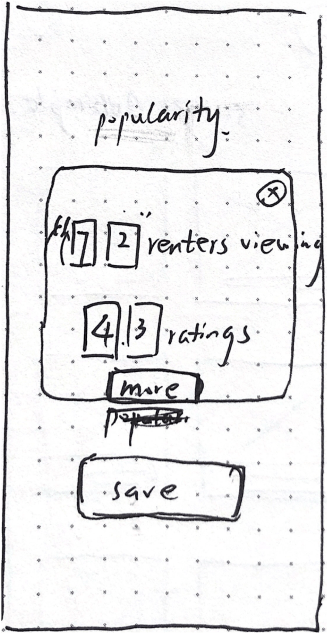 popularity
ⓧ
7 2 renters viewing
4.3 ratings
more
save